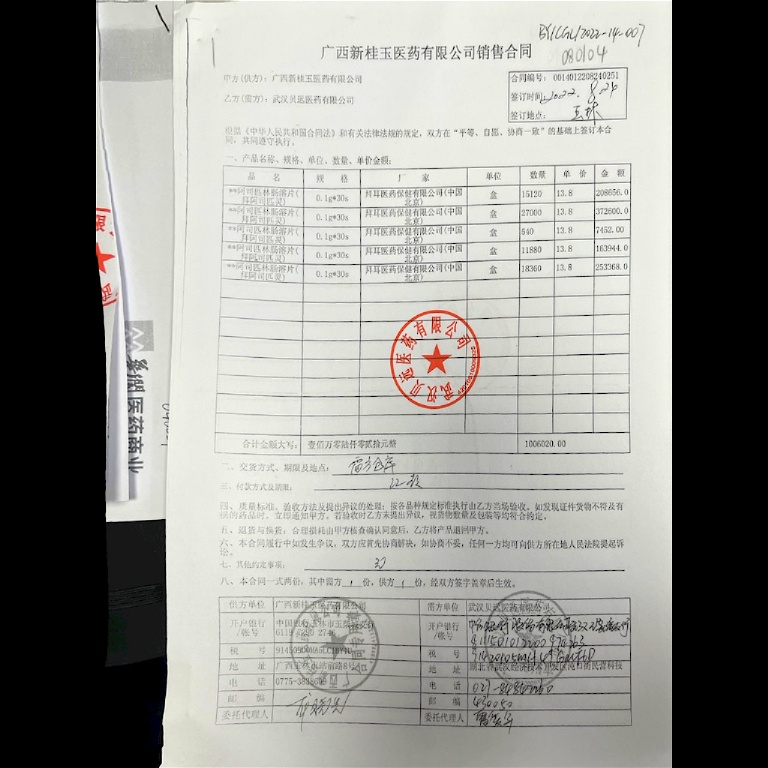 BYLCGL/2022-14-007
080104
广西新桂玉医药有限公司销售合同
甲方(供方)：广西新桂玉医药有限公司
合同编号：0014912208240251
乙方(需方)：武汉贝远医药有限公司
签订时间：2022.8.24
签订地点：玉林
根据《中华人民共和国合同法》和有关法律法规的规定，双方在“平等、自愿、协商一致”的基础上签订本合
同，共同遵守执行。
一、产品名称、规格、单位、数量、单价金额：
品 名 规 格 厂 家 单位 数量 单 价 金 额
**阿司匹林肠溶片(拜阿司匹灵) 0.1g*30s 拜耳医药保健有限公司(中国北京) 盒 15120 13.8 208656.0
**阿司匹林肠溶片(拜阿司匹灵) 0.1g*30s 拜耳医药保健有限公司(中国北京) 盒 27000 13.8 372600.0
**阿司匹林肠溶片(拜阿司匹灵) 0.1g*30s 拜耳医药保健有限公司(中国北京) 盒 540 13.8 7452.00
**阿司匹林肠溶片(拜阿司匹灵) 0.1g*30s 拜耳医药保健有限公司(中国北京) 盒 11880 13.8 163944.0
**阿司匹林肠溶片(拜阿司匹灵) 0.1g*30s 拜耳医药保健有限公司(中国北京) 盒 18360 13.8 253368.0
武汉贝远医药有限公司
合计金额大写： 壹佰万零陆仟零贰拾元整 1006020.00
二、交货方式、期限及地点： 需方仓库
三、付款方式及期限：
四、质量标准、验收方法及提出异议的处理：按各品种规定标准执行由乙方当场验收。如发现证件货物不符及有
损的药品时，立即通知甲方。若验收时乙方未提出异议，视货物数量及包装等均符合约定。
五、退货与换货：合理损耗由甲方核查确认同意后，乙方将产品退回甲方。
六、本合同履行中如发生争议，双方应首先协商解决，如协商不妥，任何一方均可向供方所在地人民法院提起诉
讼。
七、其他约定事项：
八、本合同一式两份，其中需方 1 份，供方 1 份，经双方签字盖章后生效。
供方单位 广西新桂玉医药有限公司 需方单位 武汉贝远医药有限公司
开户银行/帐号 开户银行/帐号
税 号 税 号
地 址 地 址
电 话 电 话
邮 编 邮 编 430050
委托代理人 委托代理人
医药商业